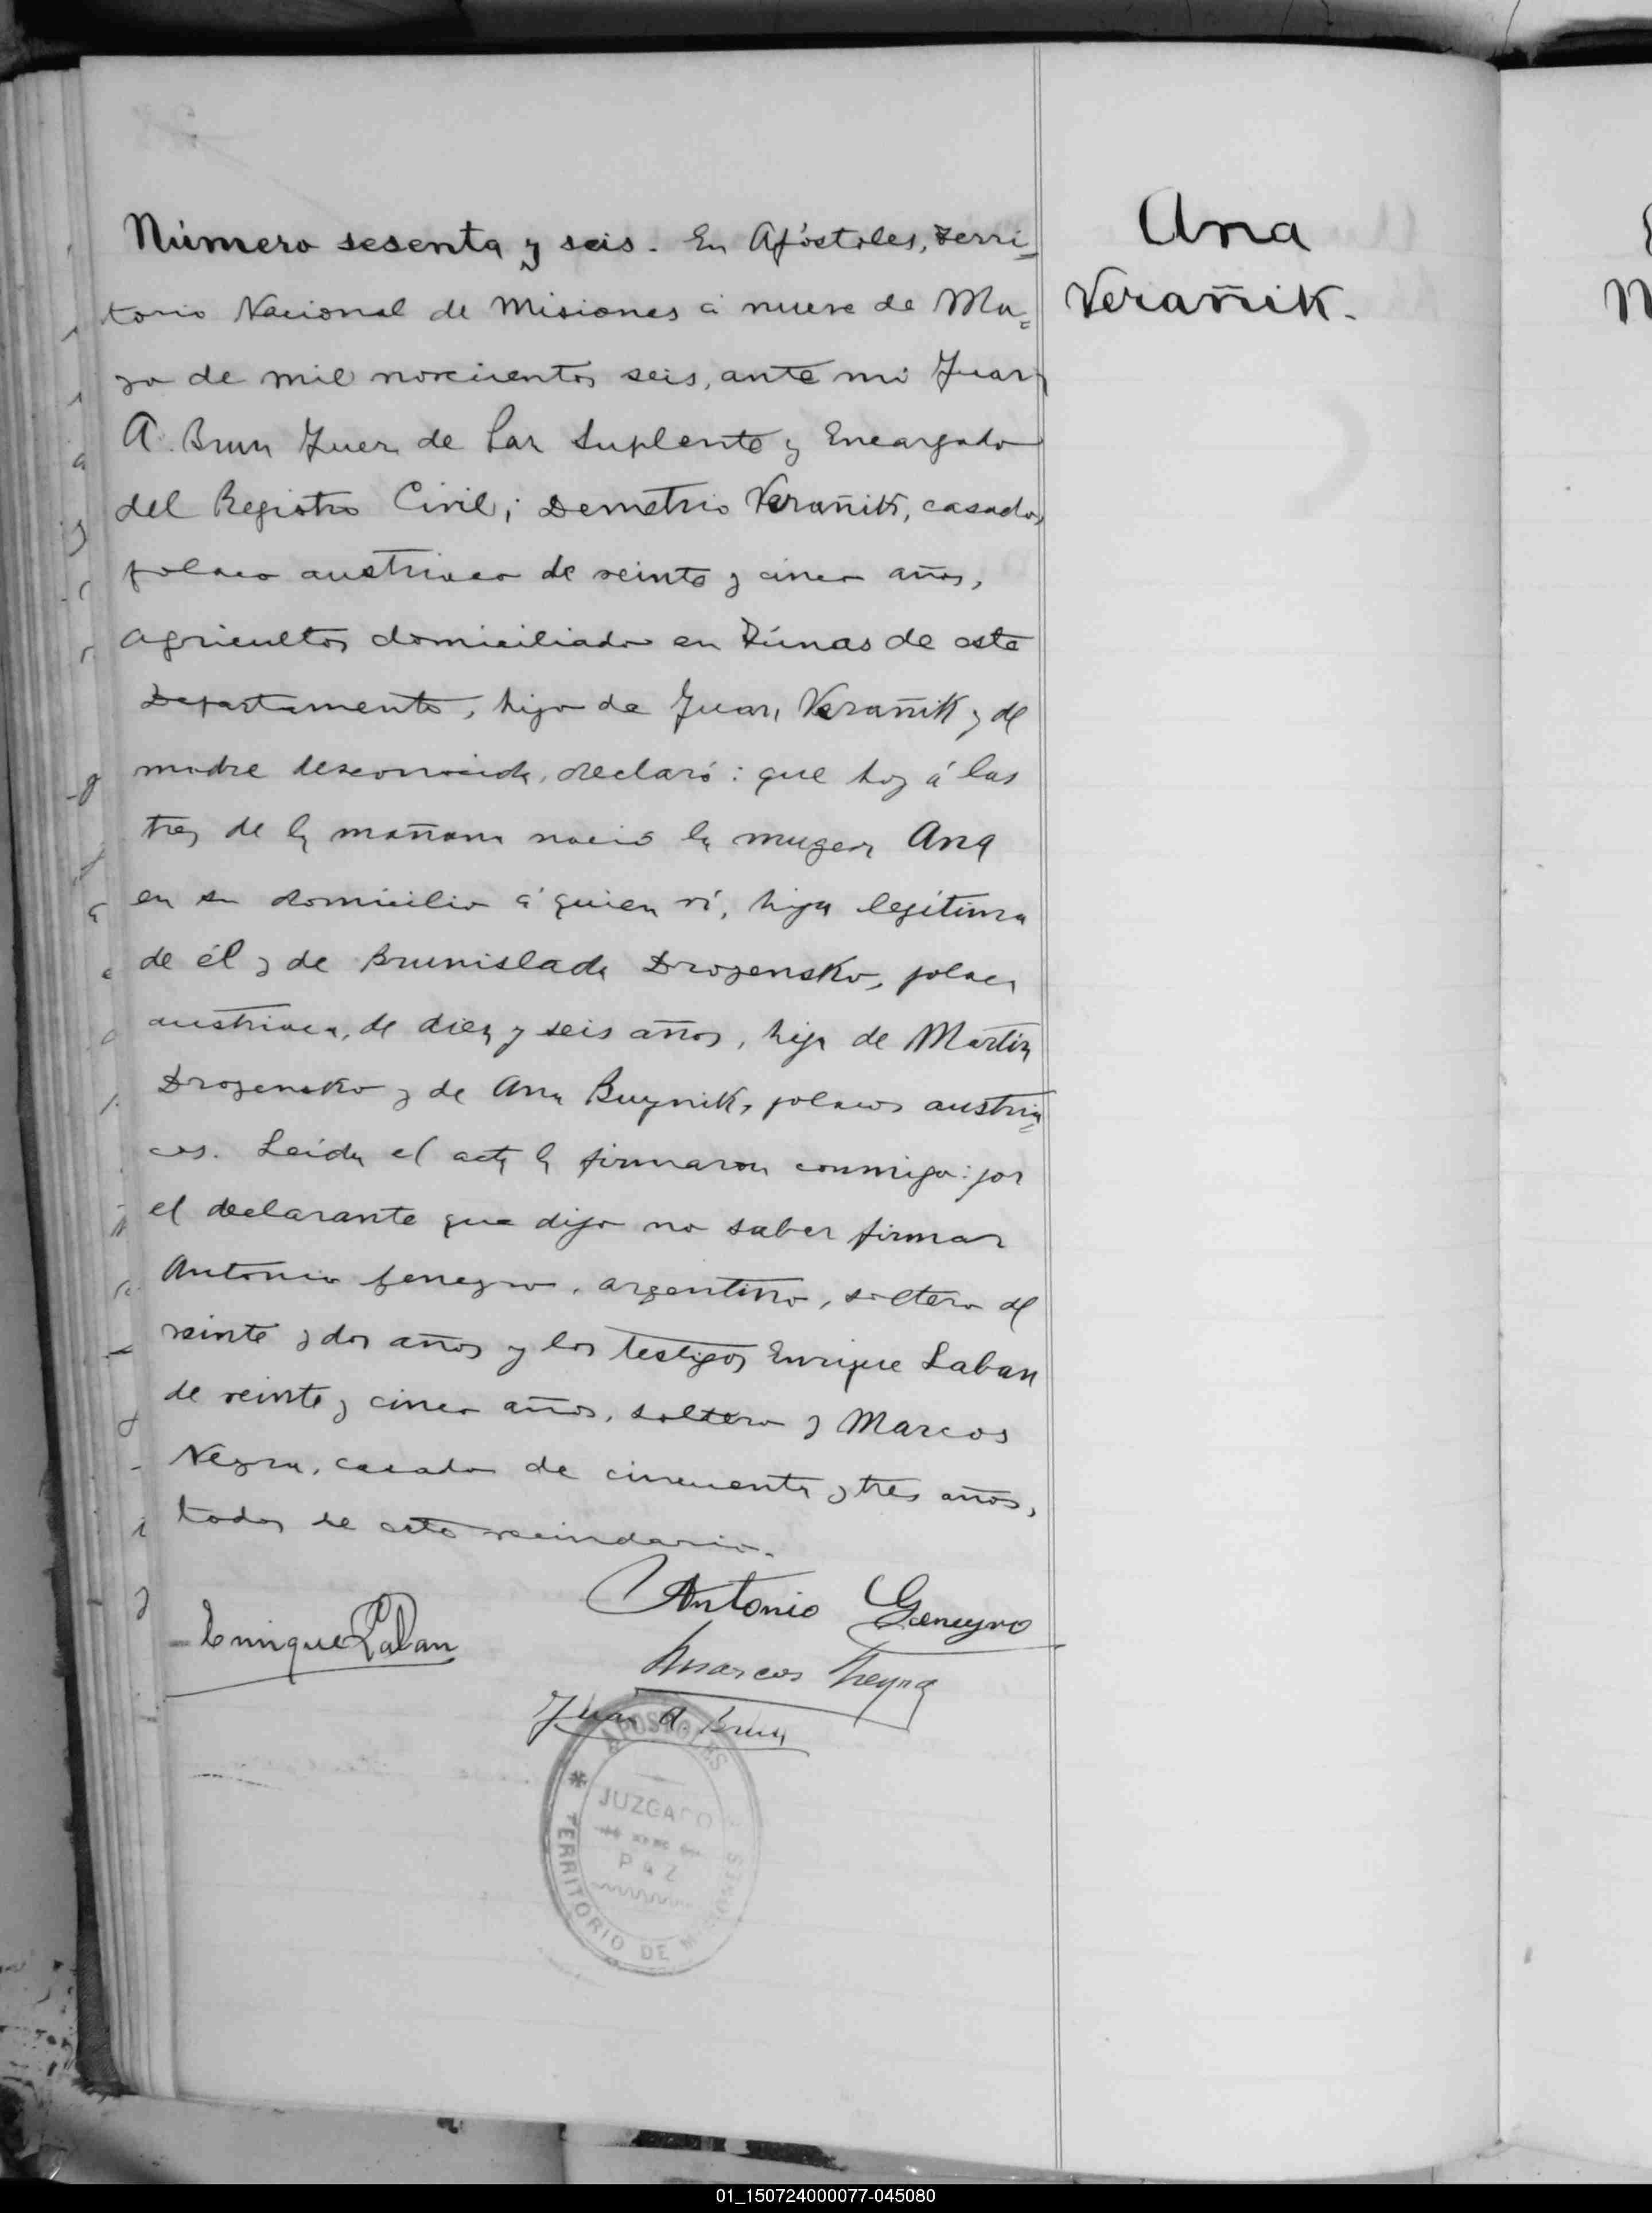 Ana
Verañik.
Número sesenta y seis. En Apóstoles, Terri=
torio Nacional de Misiones á nueve de Ma=
yo de mil novecientos seis, ante mi Juan
A. Brun Juez de Paz Suplente y Encargado
del Registro Civil; Demetrio Verañik, casado,
polaco austriaco de veinte y cinco años,
agricultor domiciliado en Tunas de este
Departamento, hijo de Juan Verañik y de
madre desconocida, declaró: que hoy á las
tres de la mañana nació la muger Ana
en su domicilio á quien ví, hija legítima
de él y de Brunislada Drozensko, polaca
austriaca, de diez y seis años, hija de Martin
Drozensko y de Ana Buynik, polacos austria=
cos. Leida el acta la firmaron conmigo: por
el declarante que dijo no saber firmar
Antonio Geneyro, argentino, soltero de
veinte y dos años y los testigos Enrique Laban
de veinte y cinco años, soltero y Marcos
Neyra, casado de cincuenta y tres años,
todos de este vecindario.
Antonio Geneyro
Enrique Laban
Marcos Neyra
Juan A. Brun
APOSTOLES
JUZGADO
DE
PAZ
TERRITORIO DE MISIONES
01_150724000077-045080